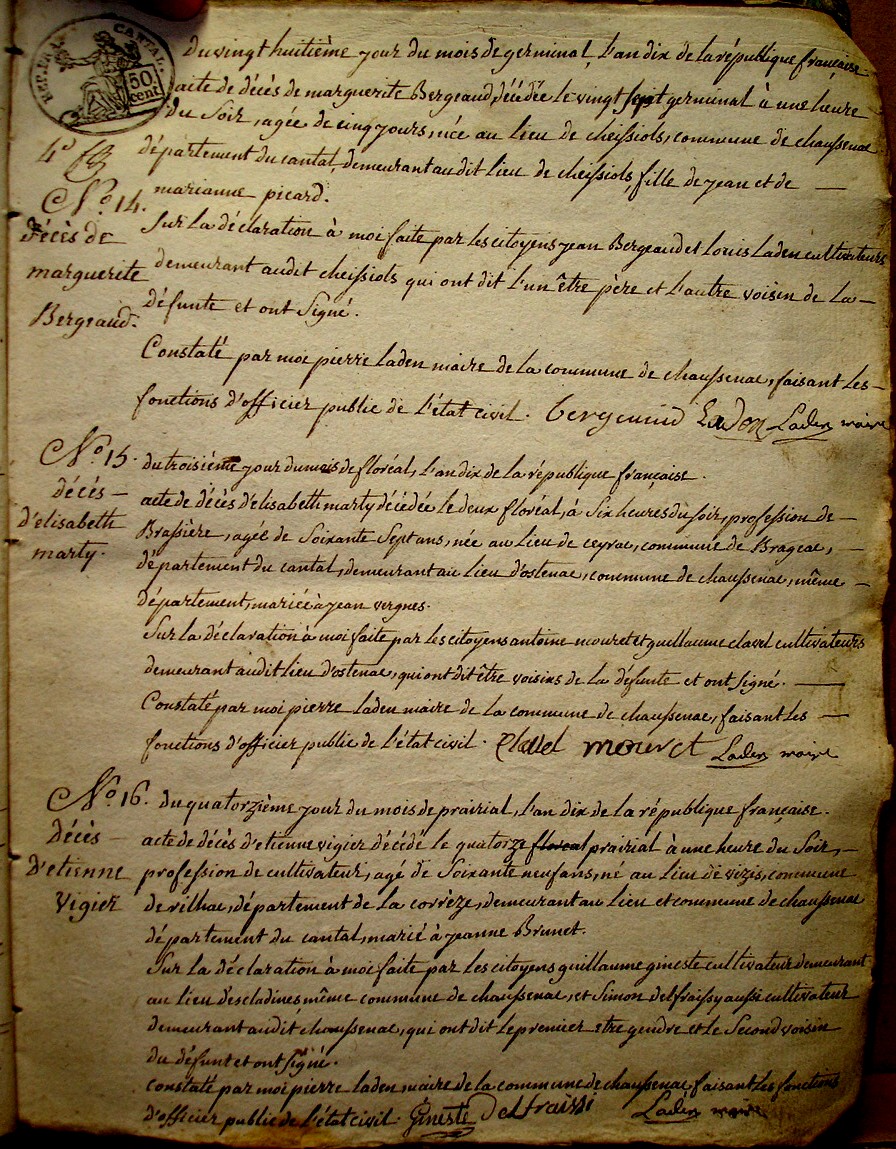 REP. FRA. CANTAL.
50 cent
4e
Du vingt huitième jour du mois de germinal, L'an dix de la république française
acte de décès de marguerite Bergeaud, décédée le vingt sept germinal à une heure
du Soir, agée de cinq jours, née au lieu de cheissiols, commune de chaussenac
département du cantal, demeurant audit lieu de cheissiols, fille de jean et de —
marianne picard.
No. 14.
Décès de
marguerite
Bergeaud.
Sur la déclaration à moi faite par les citoyens jean Bergeaud et Louis Laden cultivateurs
demeurant audit cheissiols qui ont dit L'un être père et L'autre voisin de La —
défunte et ont Signé.
Constaté par moi pierre Laden maire de La commune de chaussenac, faisant Les —
fonctions d'officier public de L'état civil. bergeaud Ladon Laden maire
No. 15.
décès —
d'elisabeth
marty.
du troisième jour du mois de floréal, L'an dix de la république française.
acte de décès d'elisabeth marty décédée le deux floréal, à Six heures du soir, profession de —
Brassière, agée de Soixante Sept ans, née au Lieu de ceyrac, commune de Brageac, —
département du cantal, demeurant au Lieu d'ostenac, commune de chaussenac, même —
département, mariée à jean vergnes.
Sur La déclaration à moi faite par les citoyens antoine mouret et guillaume clavel cultivateurs
demeurant audit Lieu d'ostenac, qui ont dit être voisins de La défunte et ont Signé. —
Constaté par moi pierre Laden maire de La commune de chaussenac, faisant Les —
fonctions d'officier public de L'état civil. Clavel mouret Laden maire
No. 16.
décès —
D'etienne
Vigier
du quatorzième jour du mois de prairial, L'an dix de la république française.
acte de décès d'etienne vigier décédé le quatorze floreal prairial à une heure du Soir, —
profession de cultivateur, agé de Soixante neuf ans, né au Lieu de vizis, commune
de rilhac, département de La corrèze, demeurant au Lieu et commune de chaussenac
département du cantal, marié à jeanne Brunet.
Sur La déclaration à moi faite par Les citoyens guillaume gineste cultivateur demeurant
au Lieu d'escladines même commune de chaussenac, et Simon delfraissy aussi cultivateur
demeurant audit chaussenac, qui ont dit Le premier etre gendre et Le Second voisin
du défunt et ont Signé.
Constaté par moi pierre Laden maire de La commune de chaussenac faisant Les fonctions
d'officier public de L'état civil. Gineste Delfraissi Laden maire